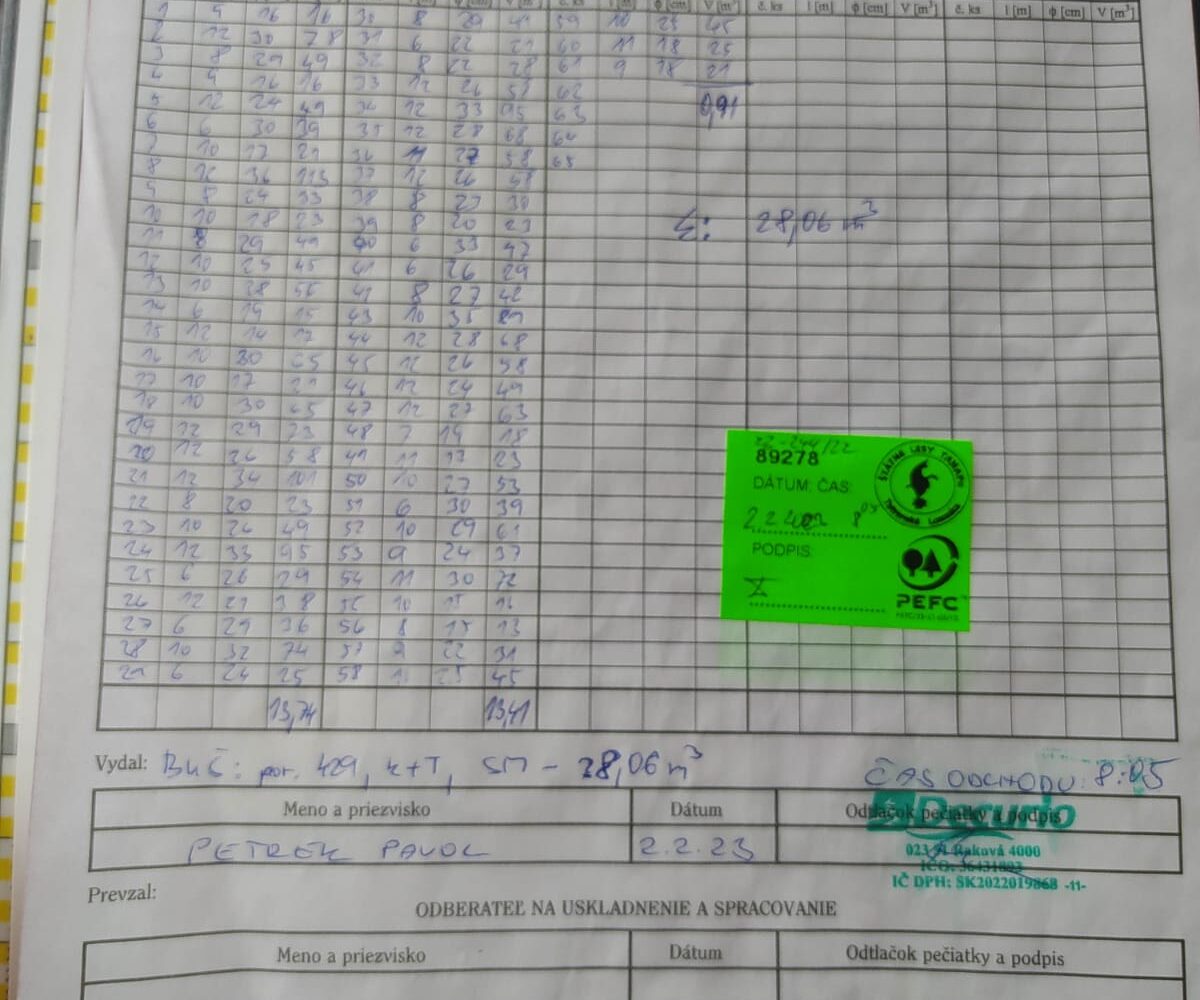 l [m] ϕ [cm] V [m³] č. ks l [m] ϕ [cm] V [m³] č. ks l [m] ϕ [cm] V [m³] č. ks l [m] ϕ [cm] V [m³]
1 9 16 16 30 8 29 59 10 25 45
2 12 30 78 31 6 22 21 60 11 18 25
3 8 29 49 32 8 22 28 61 9 18 21
4 9 16 16 33 12 26 58 62
5 12 24 49 34 12 33 95 63 0,91
6 6 30 39 35 12 28 68 64
7 10 17 21 36 11 27 58 65
8 12 36 113 37 12 26 58
9 8 24 33 38 8 27 39
10 10 18 23 39 8 20 23 Σ: 28,06 m³
11 8 29 49 40 6 33 47
12 10 25 45 41 6 26 29
13 10 28 56 42 8 27 42
14 6 19 15 43 10 35 89
15 12 14 17 44 12 28 68
16 10 30 65 45 12 26 58
17 10 17 21 46 12 24 49
18 10 30 65 47 12 27 63
19 12 29 73 48 7 19 18
20 12 26 58 49 11 17 23
21 12 34 101 50 10 27 53
22 8 20 23 51 6 30 39
23 10 26 49 52 10 29 61
24 12 33 95 53 9 24 37
25 6 26 29 54 11 30 72
26 12 21 38 55 10 15 16
27 6 29 36 56 8 15 13
28 10 32 74 57 9 22 31
29 6 24 25 58 25 45
13,74 13,41
22-244/22
89278
DÁTUM: ČAS:
8 05
PODPIS:
ŠTÁTNE LESY TANAPu
Tatranská Lomnica
PEFC™
Vydal: por. 429, SM - 28,06 m³ ČAS ODCHODU: 8:05
Meno a priezvisko Dátum Odtlačok pečiatky a podpis
PETREK PAVOL 2.2.23
023 Raková 4000
IČO: 36431893
IČ DPH: SK2022019868 -11-
Prevzal:
ODBERATEĽ NA USKLADNENIE A SPRACOVANIE
Meno a priezvisko Dátum Odtlačok pečiatky a podpis